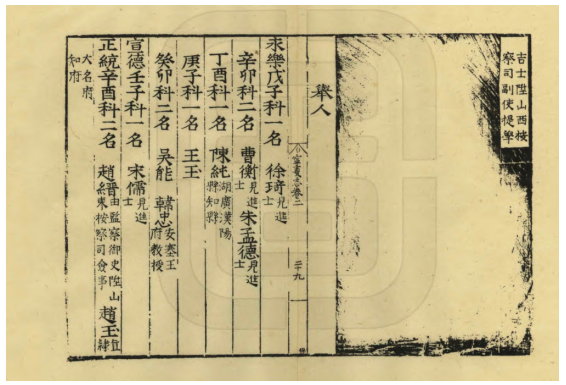 吉士陞山西按
察司副使提學
舉人
寧夏志卷二 二十九
永樂戊子科一名 徐琦見進士
辛卯科二名 曹衡見進士 朱孟德見進士
丁酉科一名 陳純湖廣漢陽縣知縣
庚子科一名 王玉
癸卯科二名 吳能 韓忠安塞王府教授
宣德壬子科一名 宋儒見進士
正統辛酉科二名 趙晉由監察御史陞山東按察司僉事 趙玉直隸
大名府
知府